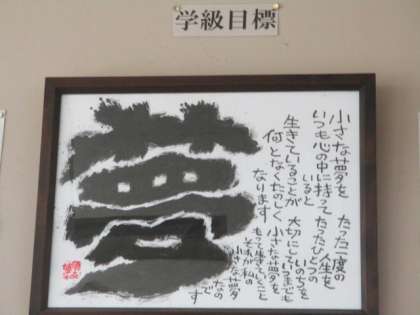 学級目標
夢
小さな夢を
いつも心の中に持って
いると
生きていることが
何となくたのしく
なります
たった一度の
人生を
たったひとつの
いのちを
大切にしていつまでも
小さな夢を
もって生きていくこと
それが私の
小さな夢
なの
です